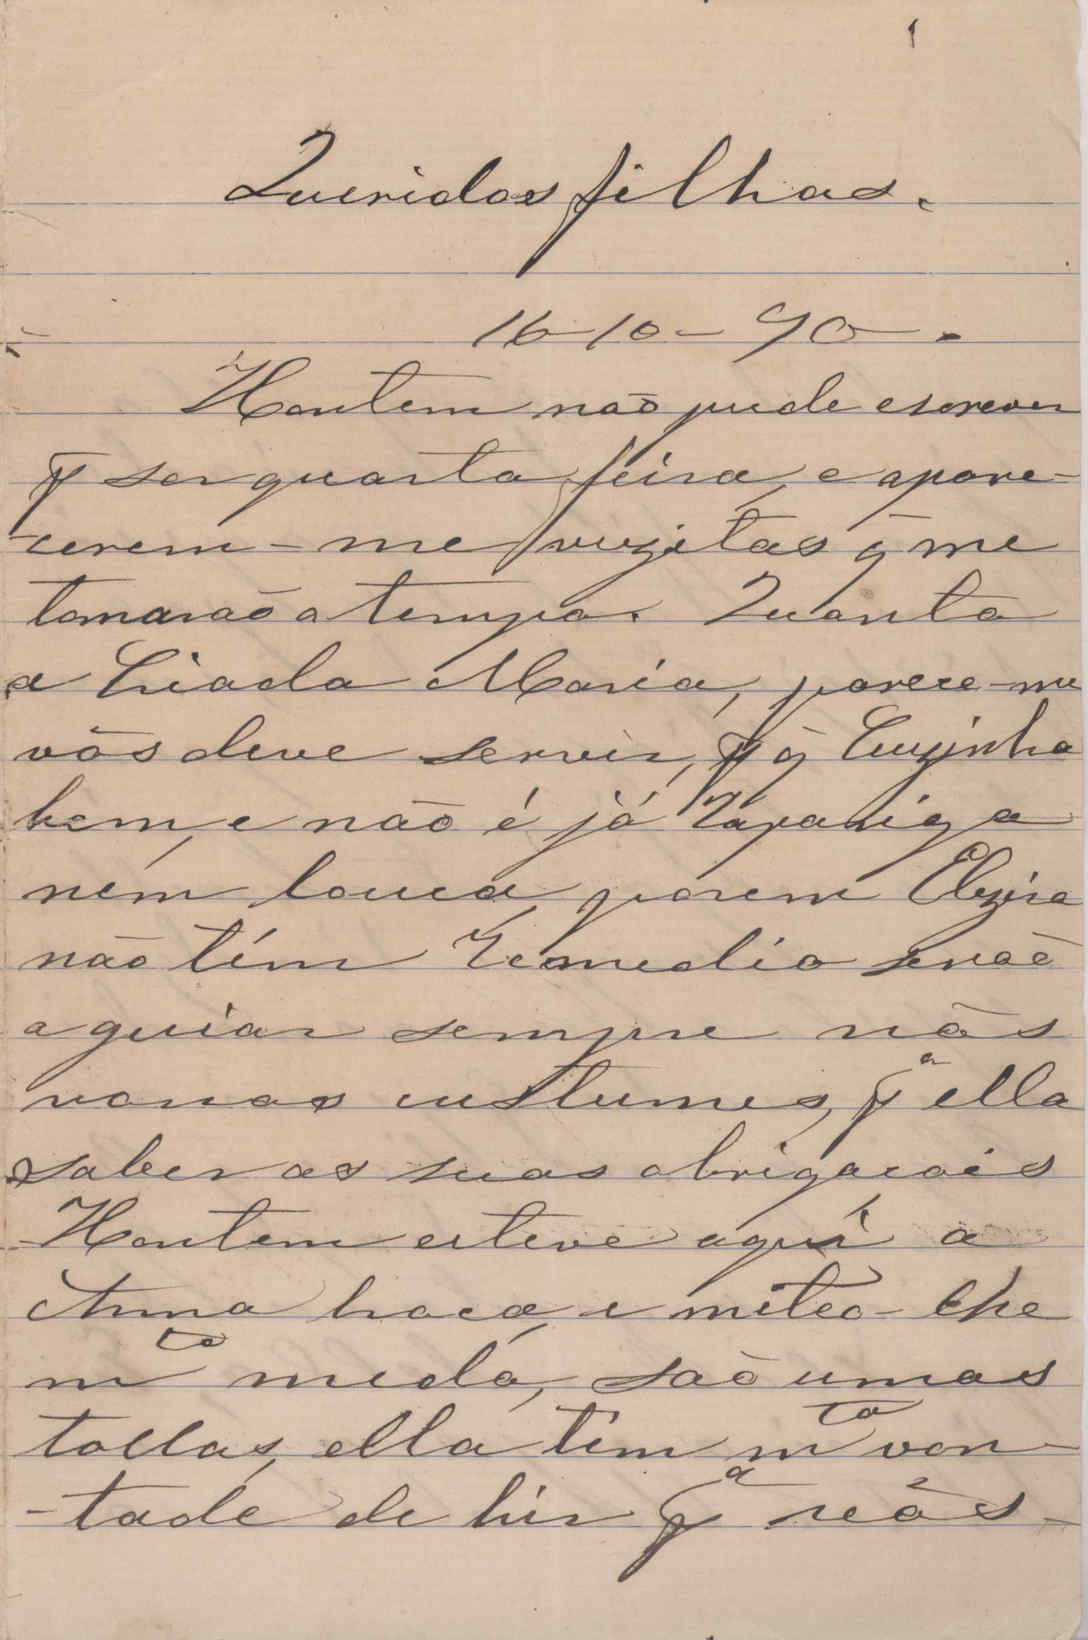 Queridos filhos.
16-10-90-.
Hontem não pude escrever
p ser quarta feira, e apare-
cerem-me vuzitas q̃ me
tomarão o tempo. Quanto
a Criada Maria, parece-me
vós deve servir, p q̃ Cuzinha
bem, e não é já Rapariga
nem louca, porem Elvira
não tém Remedio senão
a guiar sempre nós
vonos custumes, pª ella
saber as suas obrigacois
Hontem esteve aquí a
Anna, e mêteo-lhe
mto medo, são umas
tollas, ella tém mta von-
-tade de hir pª vós.